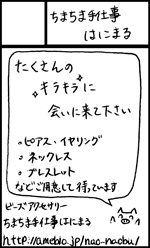 ちまちま手仕事
はにまる
たくさんの
キラキラに
会いに来て下さい
ピアス・イヤリング
ネックレス
ブレスレット
などご用意して待っています
ビーズアクセサリー
ちまちま手仕事はにまる
http://ameblo.jp/nao-naobu/